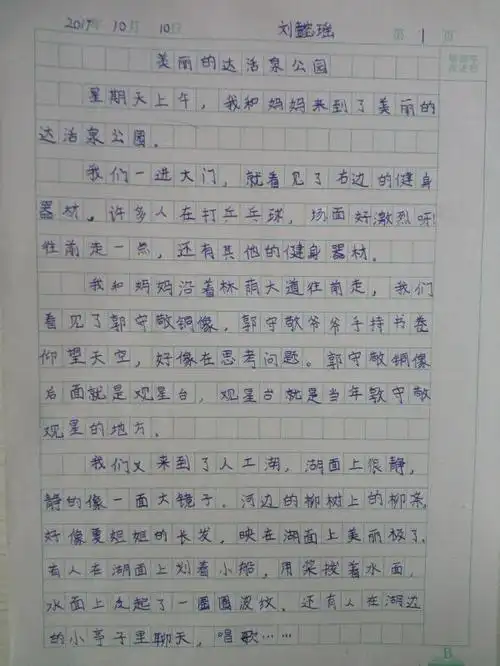 2017年 10月 10日 刘懿瑶 第 1 页
美丽的达活泉公园
星期天上午，我和妈妈来到了美丽的
达活泉公园。
我们一进大门，就看见了右边的健身
器材。许多人在打乒乓球，场面好激烈呀!
往前走一点，还有其他的健身器材。
我和妈妈沿着林荫大道往前走，我们
看见了郭守敬铜像，郭守敬爷爷手持书卷
仰望天空，好像在思考问题。郭守敬铜像
后面就是观星台，观星台就是当年敦守敬
观星的地方。
我们又来到了人工湖，湖面上很静，
静的像一面大镜子。河边的柳树上的柳条
好像夏姐姐的长发，映在湖面上美丽极了。
有人在湖面上划着小船，用桨拨着水面，
水面上泛起了一圈圈波纹，还有人在湖边
的小亭子里聊天，唱歌……